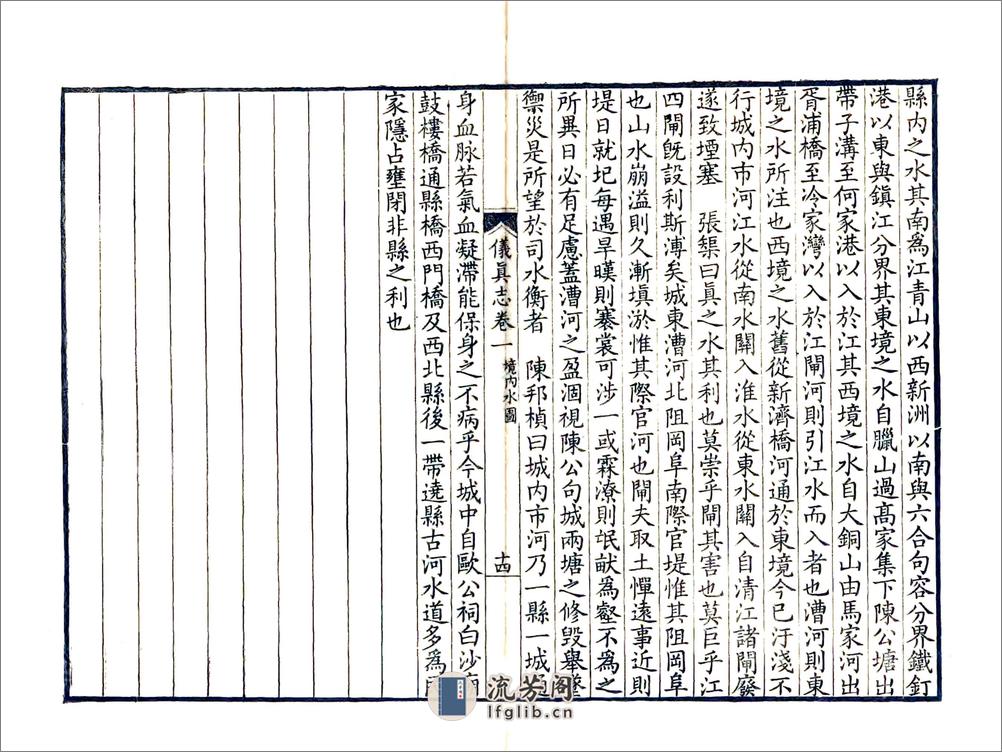 縣內之水其南爲江青山以西新洲以南與六合句容分界鐵釘
港以東與鎮江分界其東境之水自臘山過高家集下陳公塘出
帶子溝至何家港以入於江其西境之水自大銅山由馬家河出
胥浦橋至冷家灣以入於江閘河則引江水而入者也漕河則東
境之水所注也西境之水舊從新濟橋河通於東境今巳汙淺不
行城內市河江水從南水關入淮水從東水關入自清江諸閘廢
遂致堙塞　張榘曰眞之水其利也莫崇乎閘其害也莫巨乎江
四閘旣設利斯溥矣城東漕河北阻岡阜南際官堤惟其阻岡阜
也山水崩溢則久漸塡淤惟其際官河也閘夫取土憚遠事近則
堤日就圮每遇旱暵則褰裳可涉一或霖潦則氓献為壑不爲之
所異日必有足慮蓋漕河之盈涸視陳公句城兩塘之修毀舉墜
禦災是所望於司水衡者　陳邦楨曰城內市河乃一縣一城
儀眞志卷一　境內水圖　十四
身血脉若氣血凝滯能保身之不病乎今城中自歐公祠白沙
鼓樓橋通縣橋西門橋及西北縣後一帶遶縣古河水道多為
家隱占壅閉非縣之利也
流芳阁
lfglib.cn